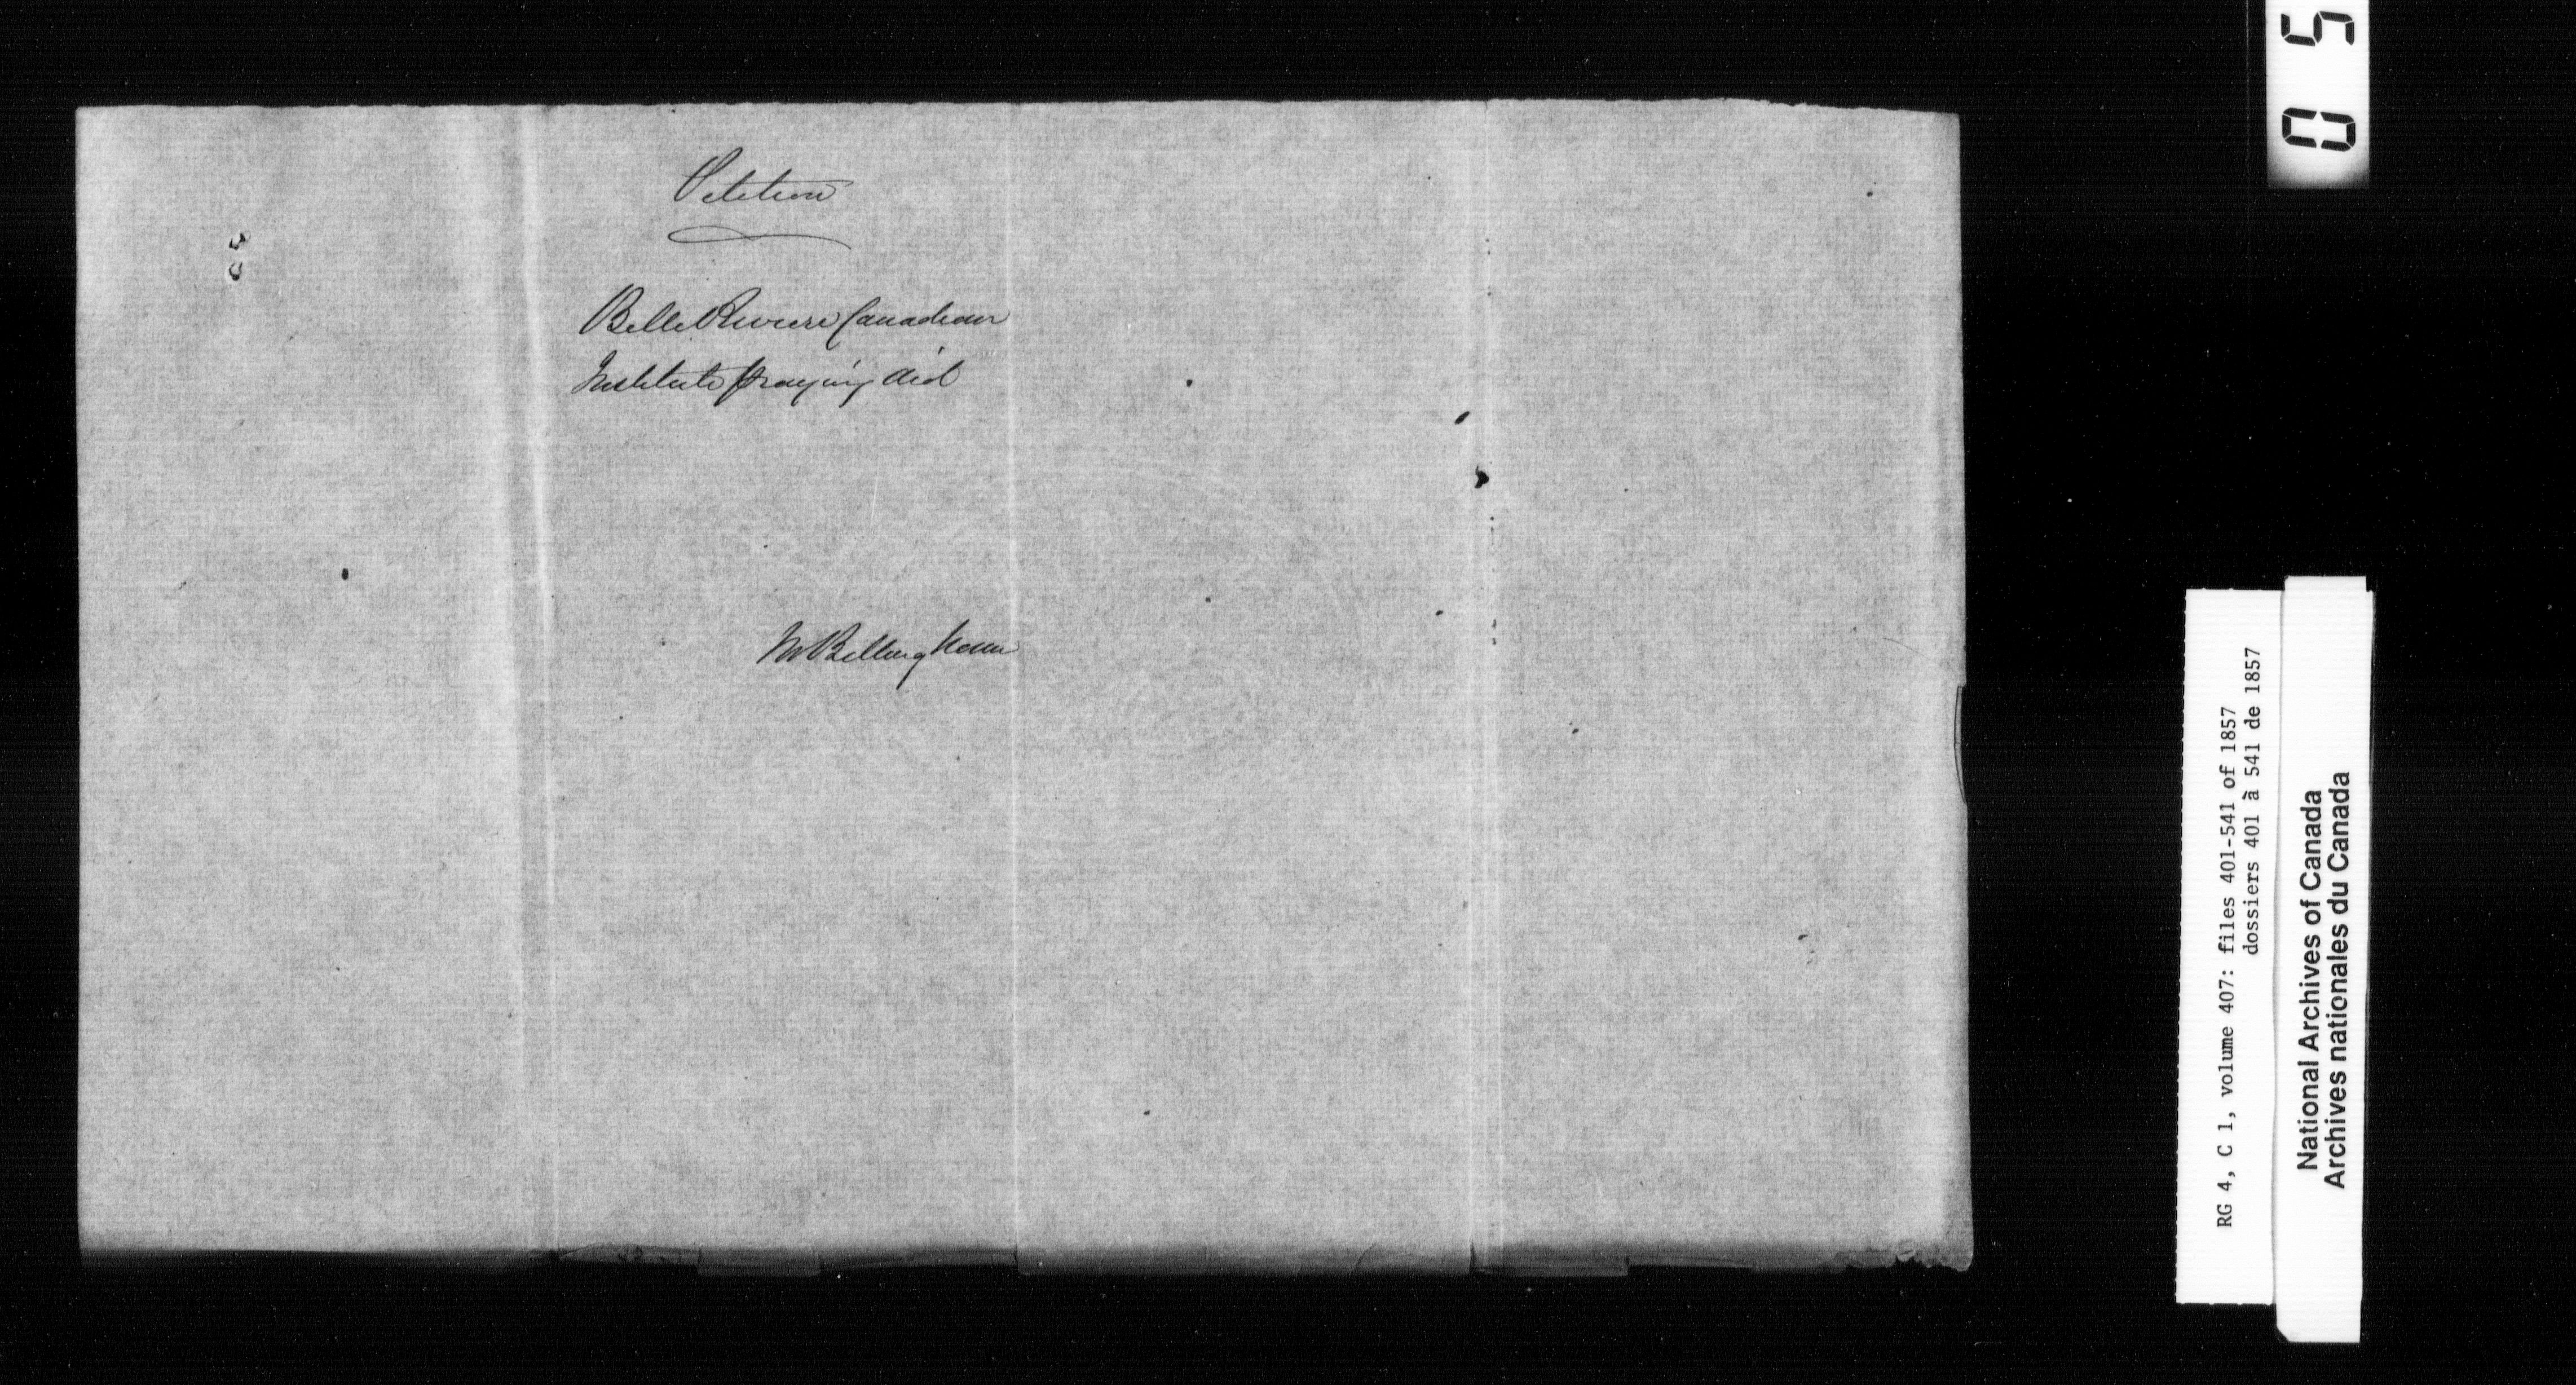 Petition
Belle Riviere Canadian
Institute praying aid
Mr Bellingham
RG 4, C 1, volume 407: files 401-541 of 1857
dossiers 401 à 541 de 1857
National Archives of Canada
Archives nationales du Canada
05